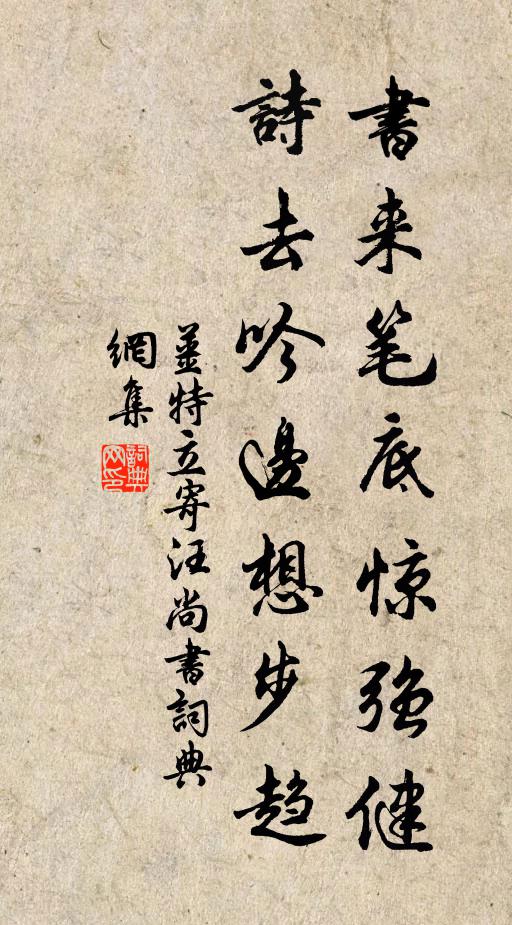 書来笔底惊强健
詩去吟邊想步趋
姜特立寄汪尚書詞典
網集
詞典
网印